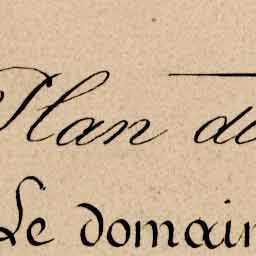 Plan du
Le domain